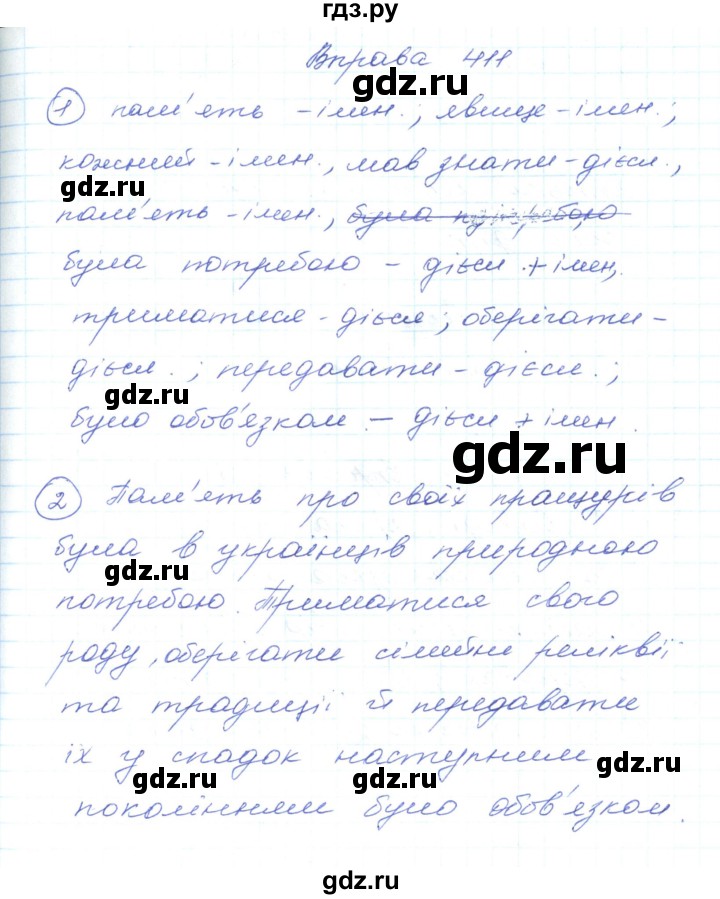 гдз.ру
Вправа 411
gdz.ru
1 пам'ять - імен.; явище - імен.;
кожний - імен., мав знати - дієсл.,
gdz.ru
пам'ять - імен., була потребою
була потребою - дієсл. + імен,
триматися - дієсл; оберігати -
дієсл.; передавати - дієсл.;
gdz.ru
було обов'язком - дієсл + імен.
gdz.ru
2 Пам'ять про своїх пращурів
була в українців природною
gdz.ru
потребою. Триматися свого
роду, оберігати сімейні реліквії
та традиції й передавати
їх у спадок наступним
gdz.ru gdz.ru gdz.ru
поколінням було обов'язком.
gdz.ru